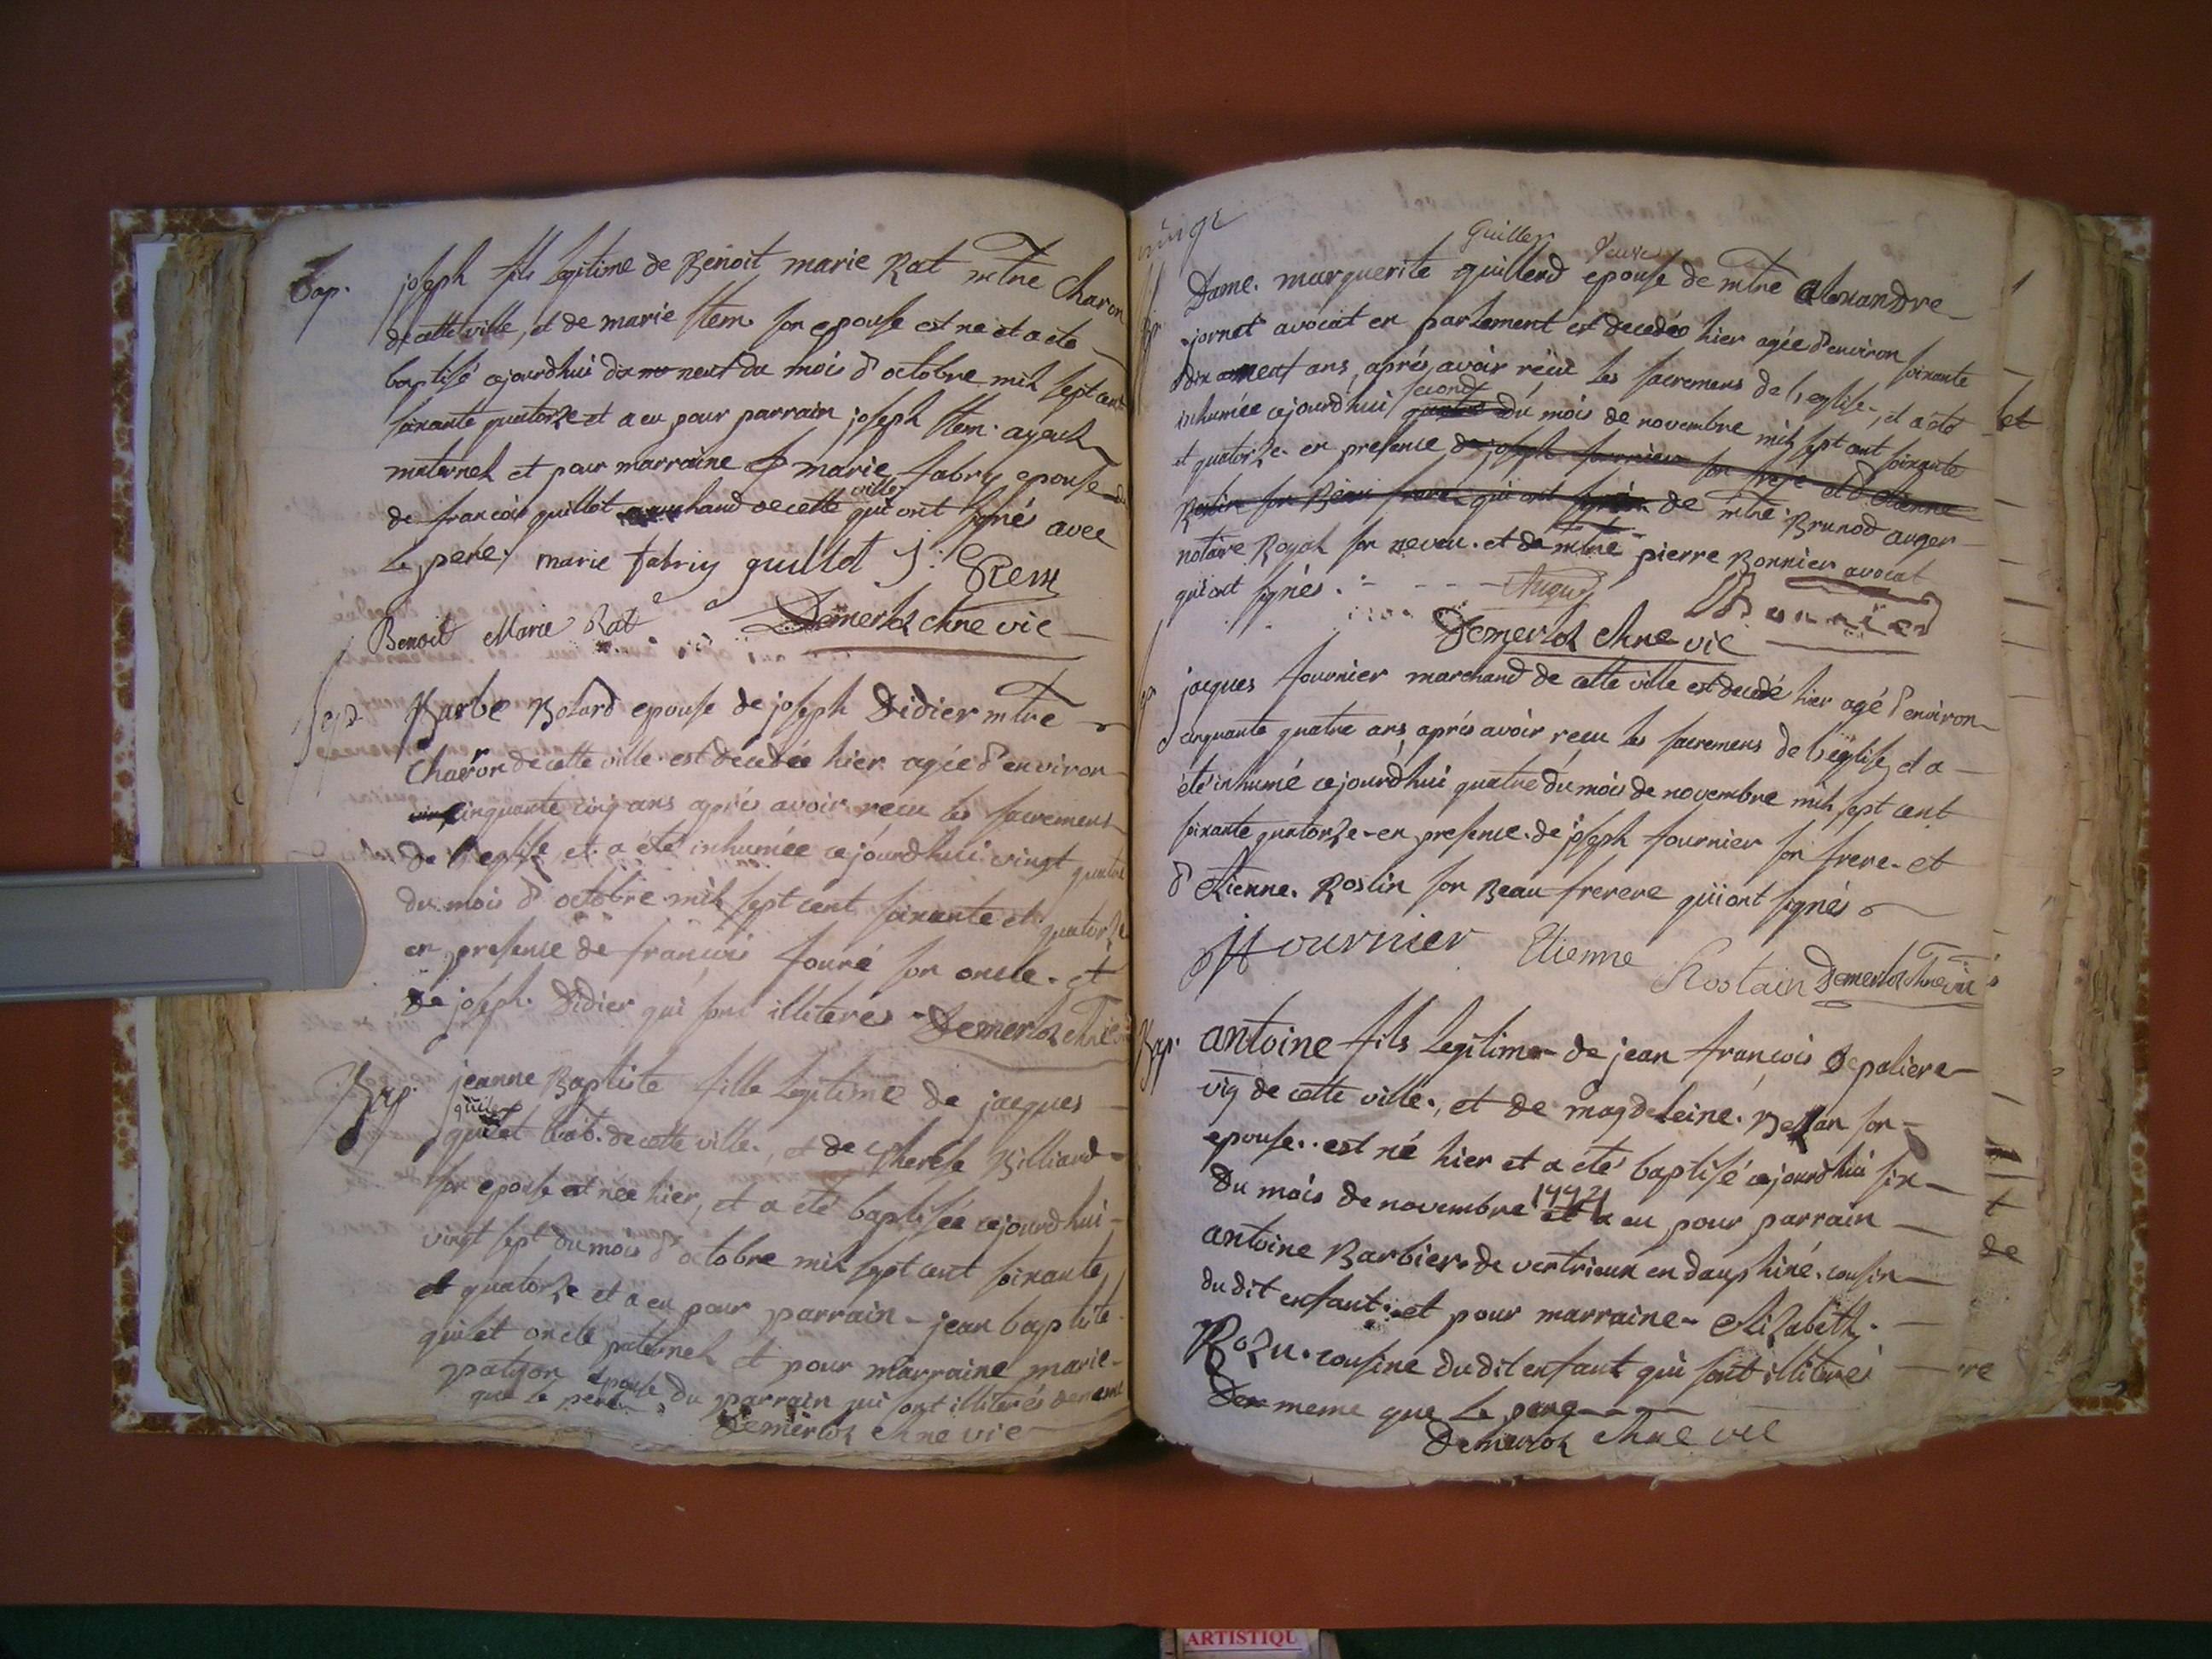 Bap. joseph fils legitime de Benoit marie Rat mtre Charon
de cette ville, et de marie Item son epouse est ne et a ete
baptisé cejourdhui dix neuf du mois d'octobre mil sept cent
soixante quatorze et a eu pour parrain joseph Item ayeul
maternel et pour marraine marie fabry epouse
de francois guillot marchand de cette ville qui ont signés avec
le pere. marie fabriy guillot J:
Benoit Marie Rat Demerloz chne vic
Sep. Barbe Bolard epouse de joseph Didier mtre
Charon de cette ville est decedée hier agée d'environ
cinquante cinq ans après avoir recu les sacremens
de l'eglise, et a été inhumée cejourdhui vingt quatre
du mois d'octobre mil sept cent soixante et quatorze
en presence de francois fouré son oncle et
de joseph Didier qui sont illiteres Demerloz chne
Bap. jeanne Baptiste fille legitime de jacques
quilet
quilet hab. de cette ville, et de therese Billiard
son epouse est née hier, et a été baptisée cejourdhui
vingt sept du mois d'octobre mil sept cent soixante
et quatorze et a eu pour parrain jean baptiste
quilet oncle paternel et pour marraine marie
patyon epouse du parrain qui sont illiterés de meme
que le pere Demerloz chne vic
Guiller veuve
Dame marguerite guillerd epouse de mtre Alexandre
jornet avocat en parlement est decedée hier agée d'environ soixante
dix neuf ans, après avoir reçue les sacremens de l'eglise, et a été
inhumée cejourd'hui second du mois de novembre mil sept cent soixante
et quatorze en presence de joseph fournier son frere et d'etienne
Roslin son Beau frere qui ont signés de mtre Brunod auger
notaire Royal son neveu et de mtre pierre Bonnier avocat
qui ont signés. Bonnier
Demerloz chne vic
Sep. jacques fournier marchand de cette ville est decedé hier agé d'environ
cinquante quatre ans, après avoir recu les sacremens de l'eglise, et a
été inhumé cejourdhui quatre du mois de novembre mil sept cent
soixante quatorze en presence de joseph fournier son frere et
d'etienne Roslin son Beau frerere qui ont signés
J fournier Etienne Rostain Demerloz chne vic
Bap. antoine fils legitime de jean francois Depaliere
vig de cette ville, et de magdeleine son
epouse est né hier et a été baptisé cejourdhui six
du mois de novembre 1774 et a eu pour parrain
antoine Barbier de vertrieux en dauphiné cousin
du dit enfant et pour marraine Elizabeth
Rozu cousine du dit enfant qui sont illiterés
De meme que le pere
Demerloz chne vic
et
t
de
re
ARTISTIQU